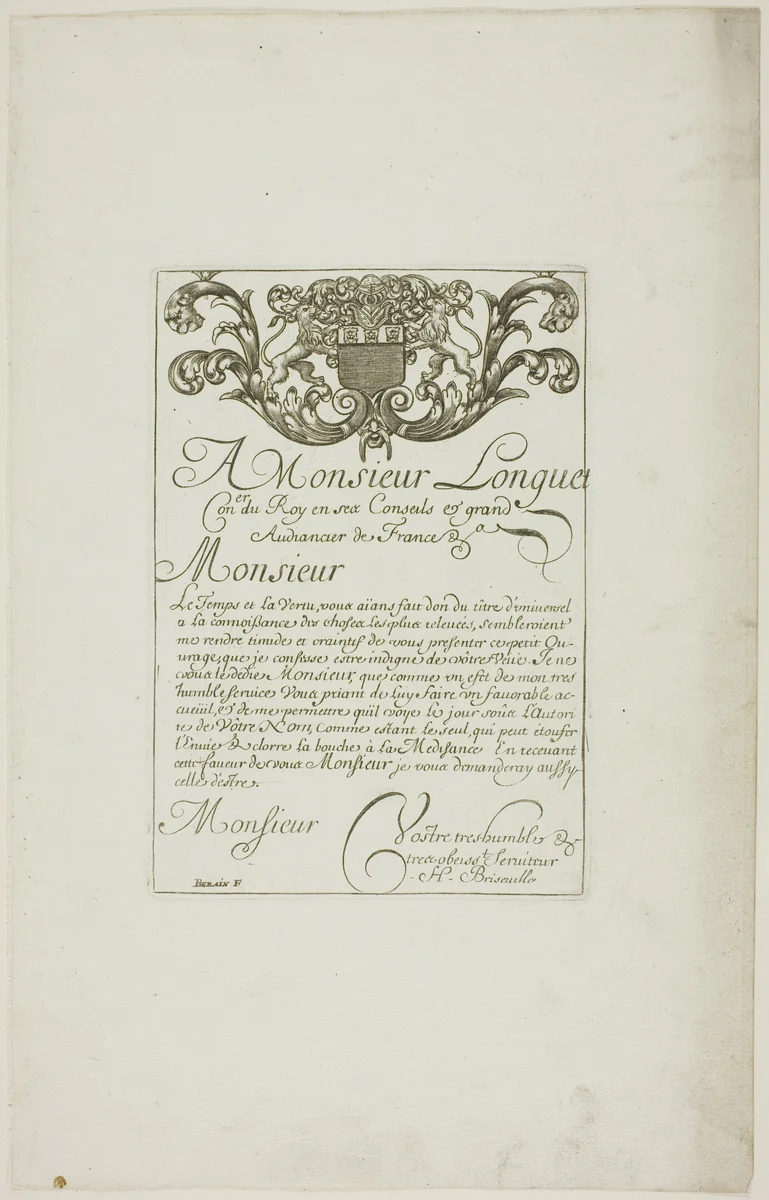 A Monsieur Longuet
Con.er du Roy en ses Conseils & grand
Audiancier de France &a
Monsieur
Le Temps et La Vertu, vous aïans fait don du tître d'vniuersel
a la connoissance des choses les plus releueés, sembleroient
me rendre timide et craintif de vous presenter ce petit Ou-
urage, que je confesse estre indigne de vôtre Veüe. Je ne
vous le dedie Monsieur, que comme vn efet de mon tres
humble seruice Vous priant de luy faire vn fauorable ac-
cueüil, & de me permettre quïl voye le jour soûs l'Autori
te de Vôtre Nom, Comme estant le seul, qui peut étoufer
l'Enuie & clorre la bouche à la Medisance En receuant
cette faueur de vous Monsieur je vous demanderay aussy
celle d'estre.
Monsieur
Vostre tres humble &
tres-obeisst. Seruiteur
- H - Briseuille
BERAIN F